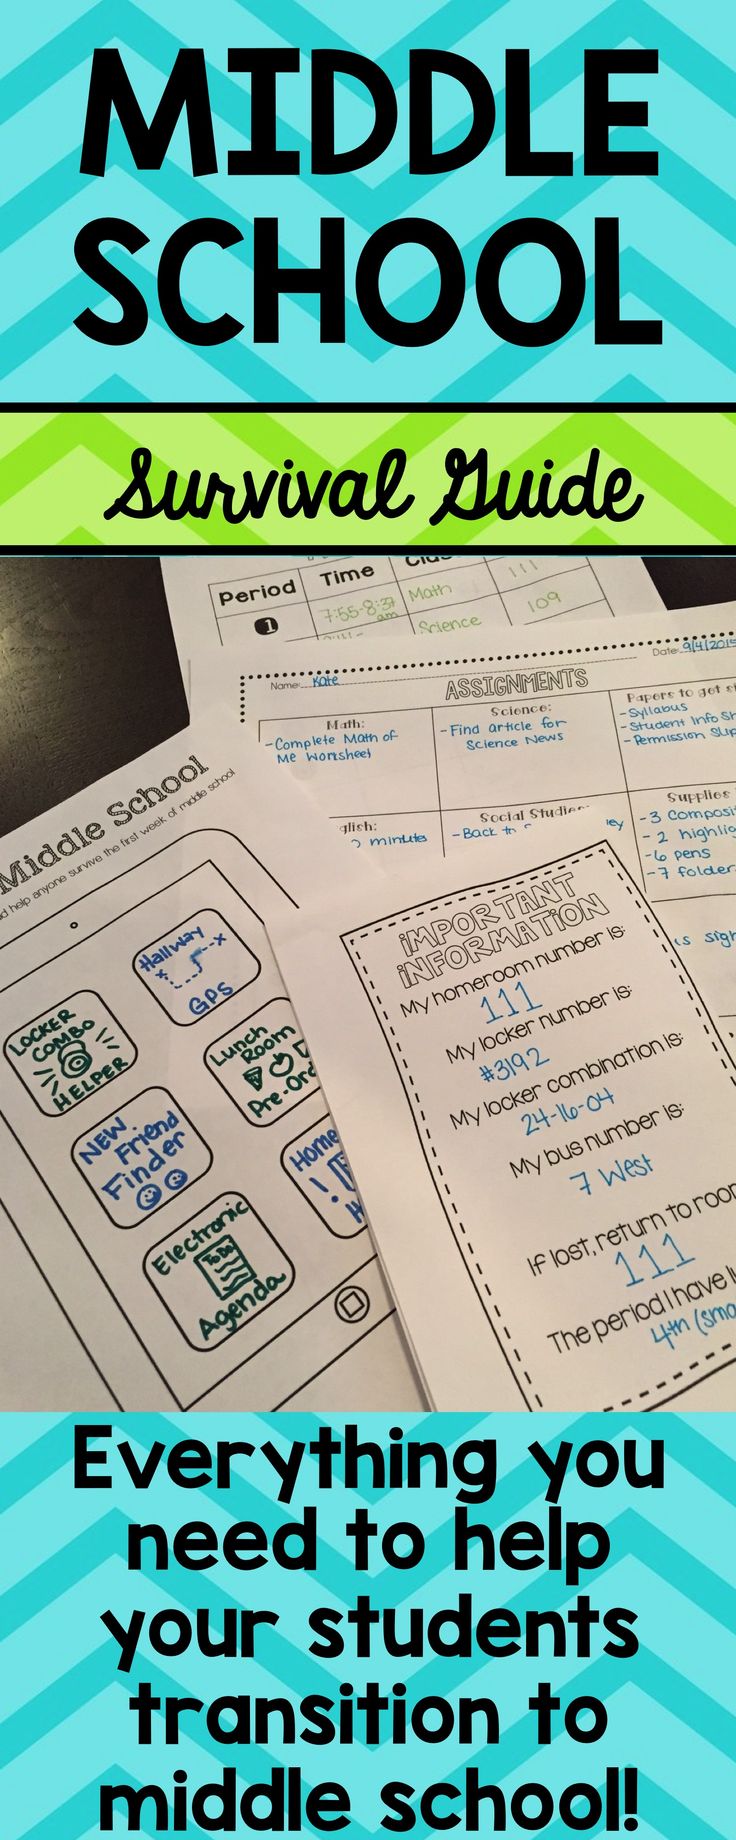 MIDDLE
SCHOOL
Survival Guide
Period Time
1 7:55-8:37 am Math 111
Science 109
Name: Kate
Date: 9/4/2015
ASSIGNMENTS
Math:
-Complete Math of
Me Worksheet
Science:
-Find article for
Science News
Papers to get
-Syllabus
-Student Info
-Permission
minutes
Social Studies:
-Back to
Supplies
-3
-2
-6 pens
-7
Middle School
help anyone survive the first week of middle school
Hallway
GPS
LOCKER
COMBO
HELPER
Lunch
Room
NEW
Friend
Finder
Home
Electronic
To Do
Agenda
IMPORTANT
INFORMATION
My homeroom number is:
111
My locker number is:
#3192
My locker combination is:
24-16-04
My bus number is:
7 West
If lost, return to room
111
The period I have
4th
Everything you
need to help
your students
transition to
middle school!